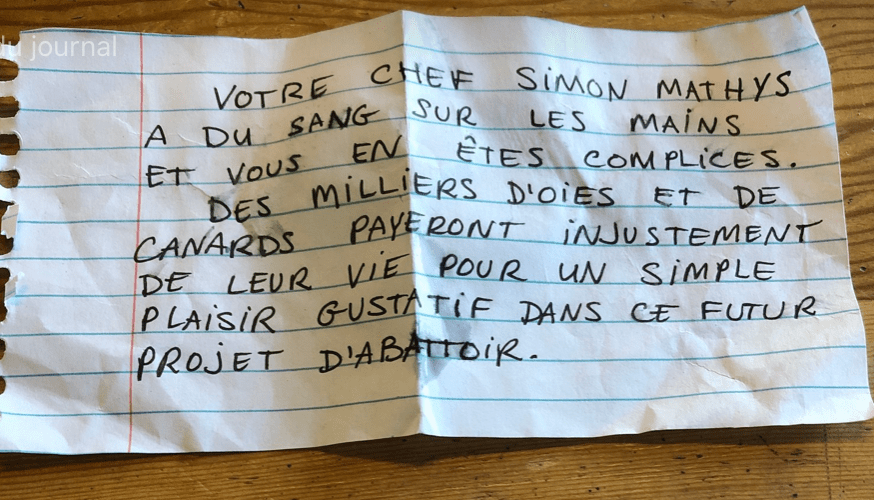 du journal
VOTRE CHEF SIMON MATHYS
A DU SANG SUR LES MAINS
ET VOUS EN ÊTES COMPLICES.
DES MILLIERS D'OIES ET DE
CANARDS PAYERONT INJUSTEMENT
DE LEUR VIE POUR UN SIMPLE
PLAISIR GUSTATIF DANS CE FUTUR
PROJET D'ABATTOIR.